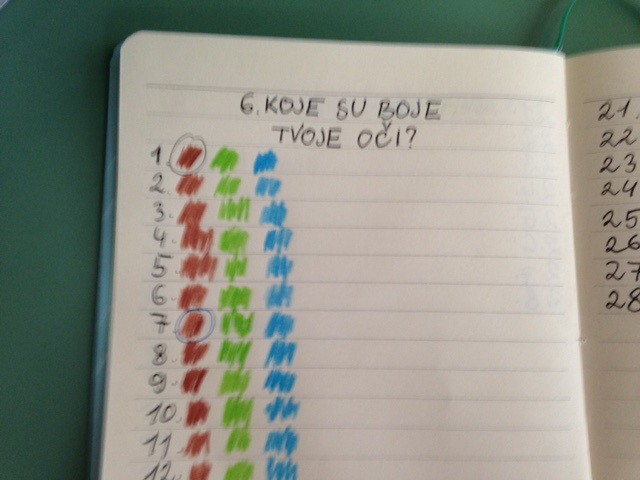 6. KOJE SU BOJE
TVOJE OČI?
1.
2.
3.
4.
5.
6.
7.
8.
9.
10.
11.
12.
21.
22
23
24
25
26
27
28